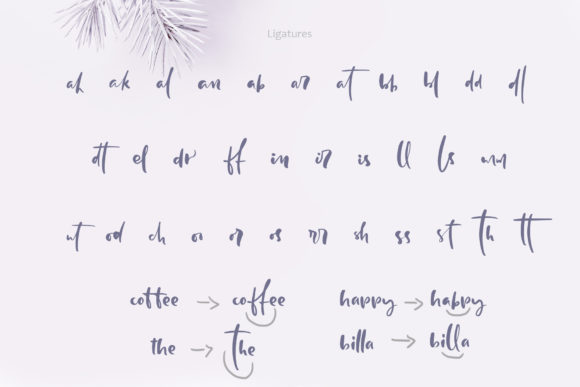 Ligatures
ah ak al an ab ar at bb bl dd dl
dt el dr ff in ir is ll ls mm
nt od ch oo or os rr sh ss st th tt
coffee → coffee happy → happy
the → the billa → billa